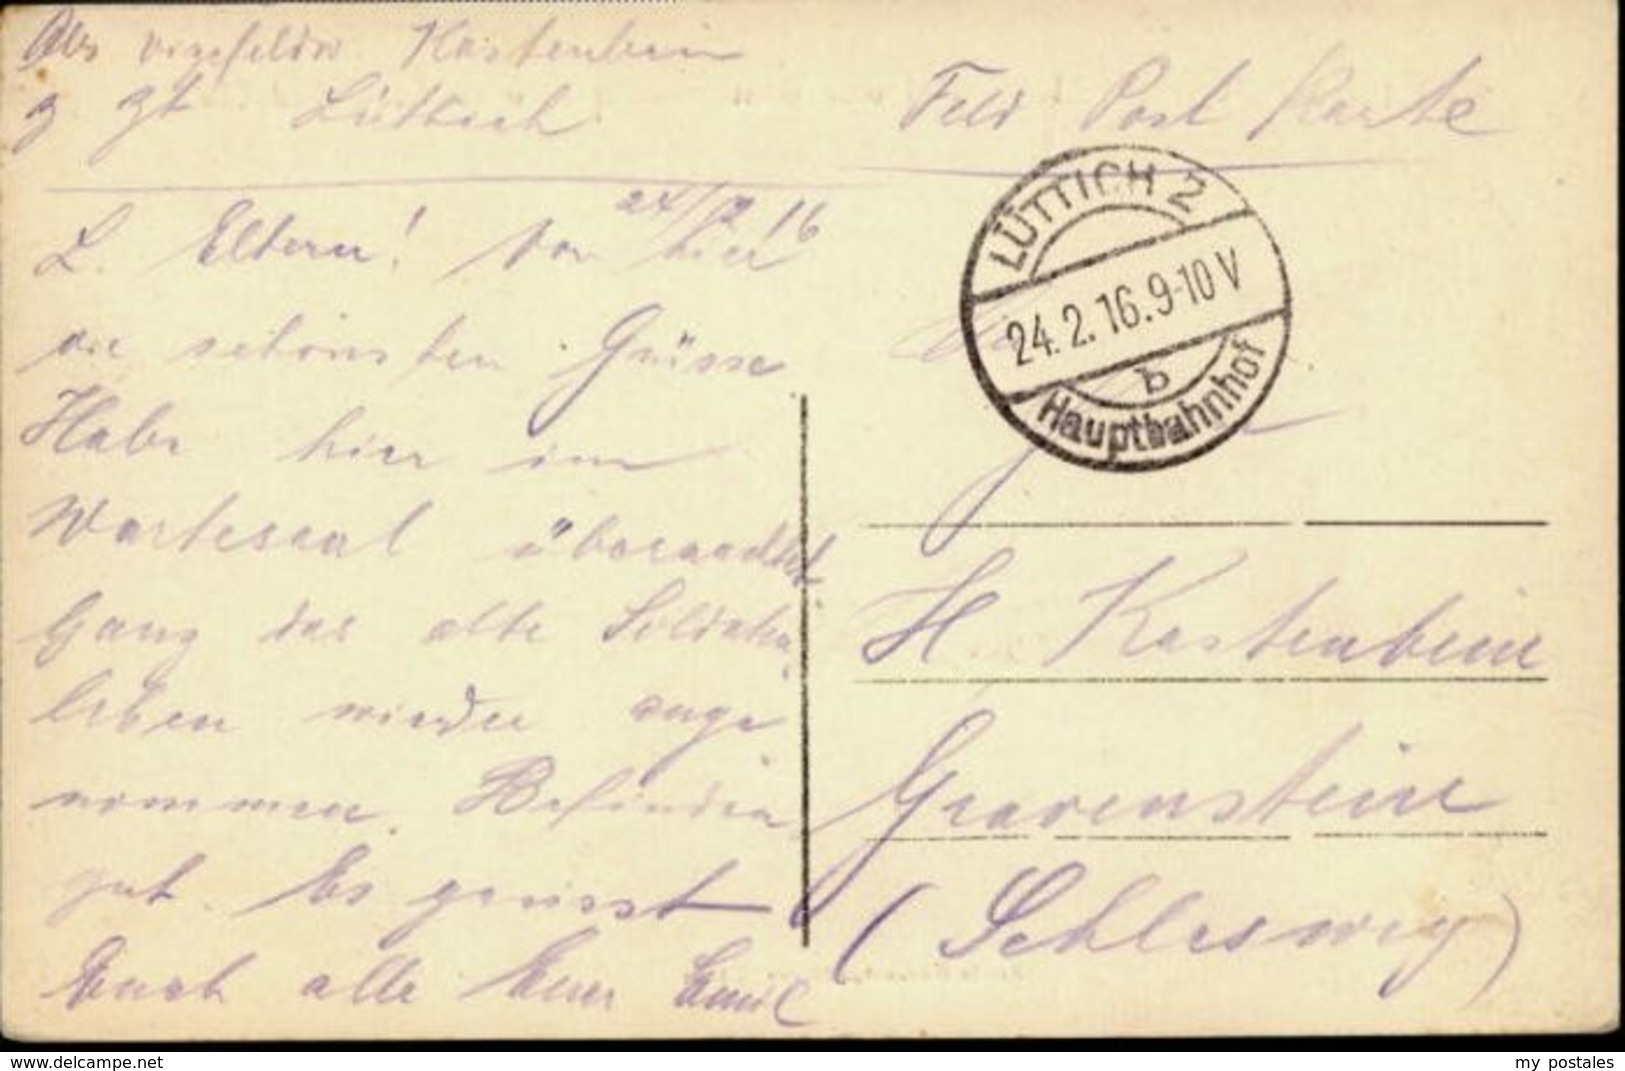 Abs Vizefeldw. Kastenbein
z. Zt. Lüttich
24/2 16
L. Eltern! Von hier
die schönsten Grüsse
Habe hier im
Wartesaal übernachtet
Ganz das alte Soldaten
leben wieder ange
nommen. Befinden
gut. Es grüsst
Euch alle Euer Emil
Feld Post Karte
LÜTTICH 2
24.2.16.9-10 V
b
Hauptbahnhof
H. Kastenbein
Gravenstein
(Schleswig)
www.delcampe.net
my postales